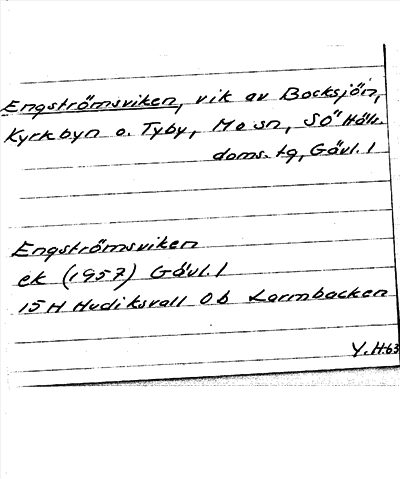 Engströmsviken, vik av Bocksjön,
Kyrkbyn o. Tyby, Mo sn, SÖ Häls.
doms. tg, Gävl. l
Engströmsviken
ek (1957) Gävl. l
15H Hudiksvall 0b Larmbacken
Y.H.63